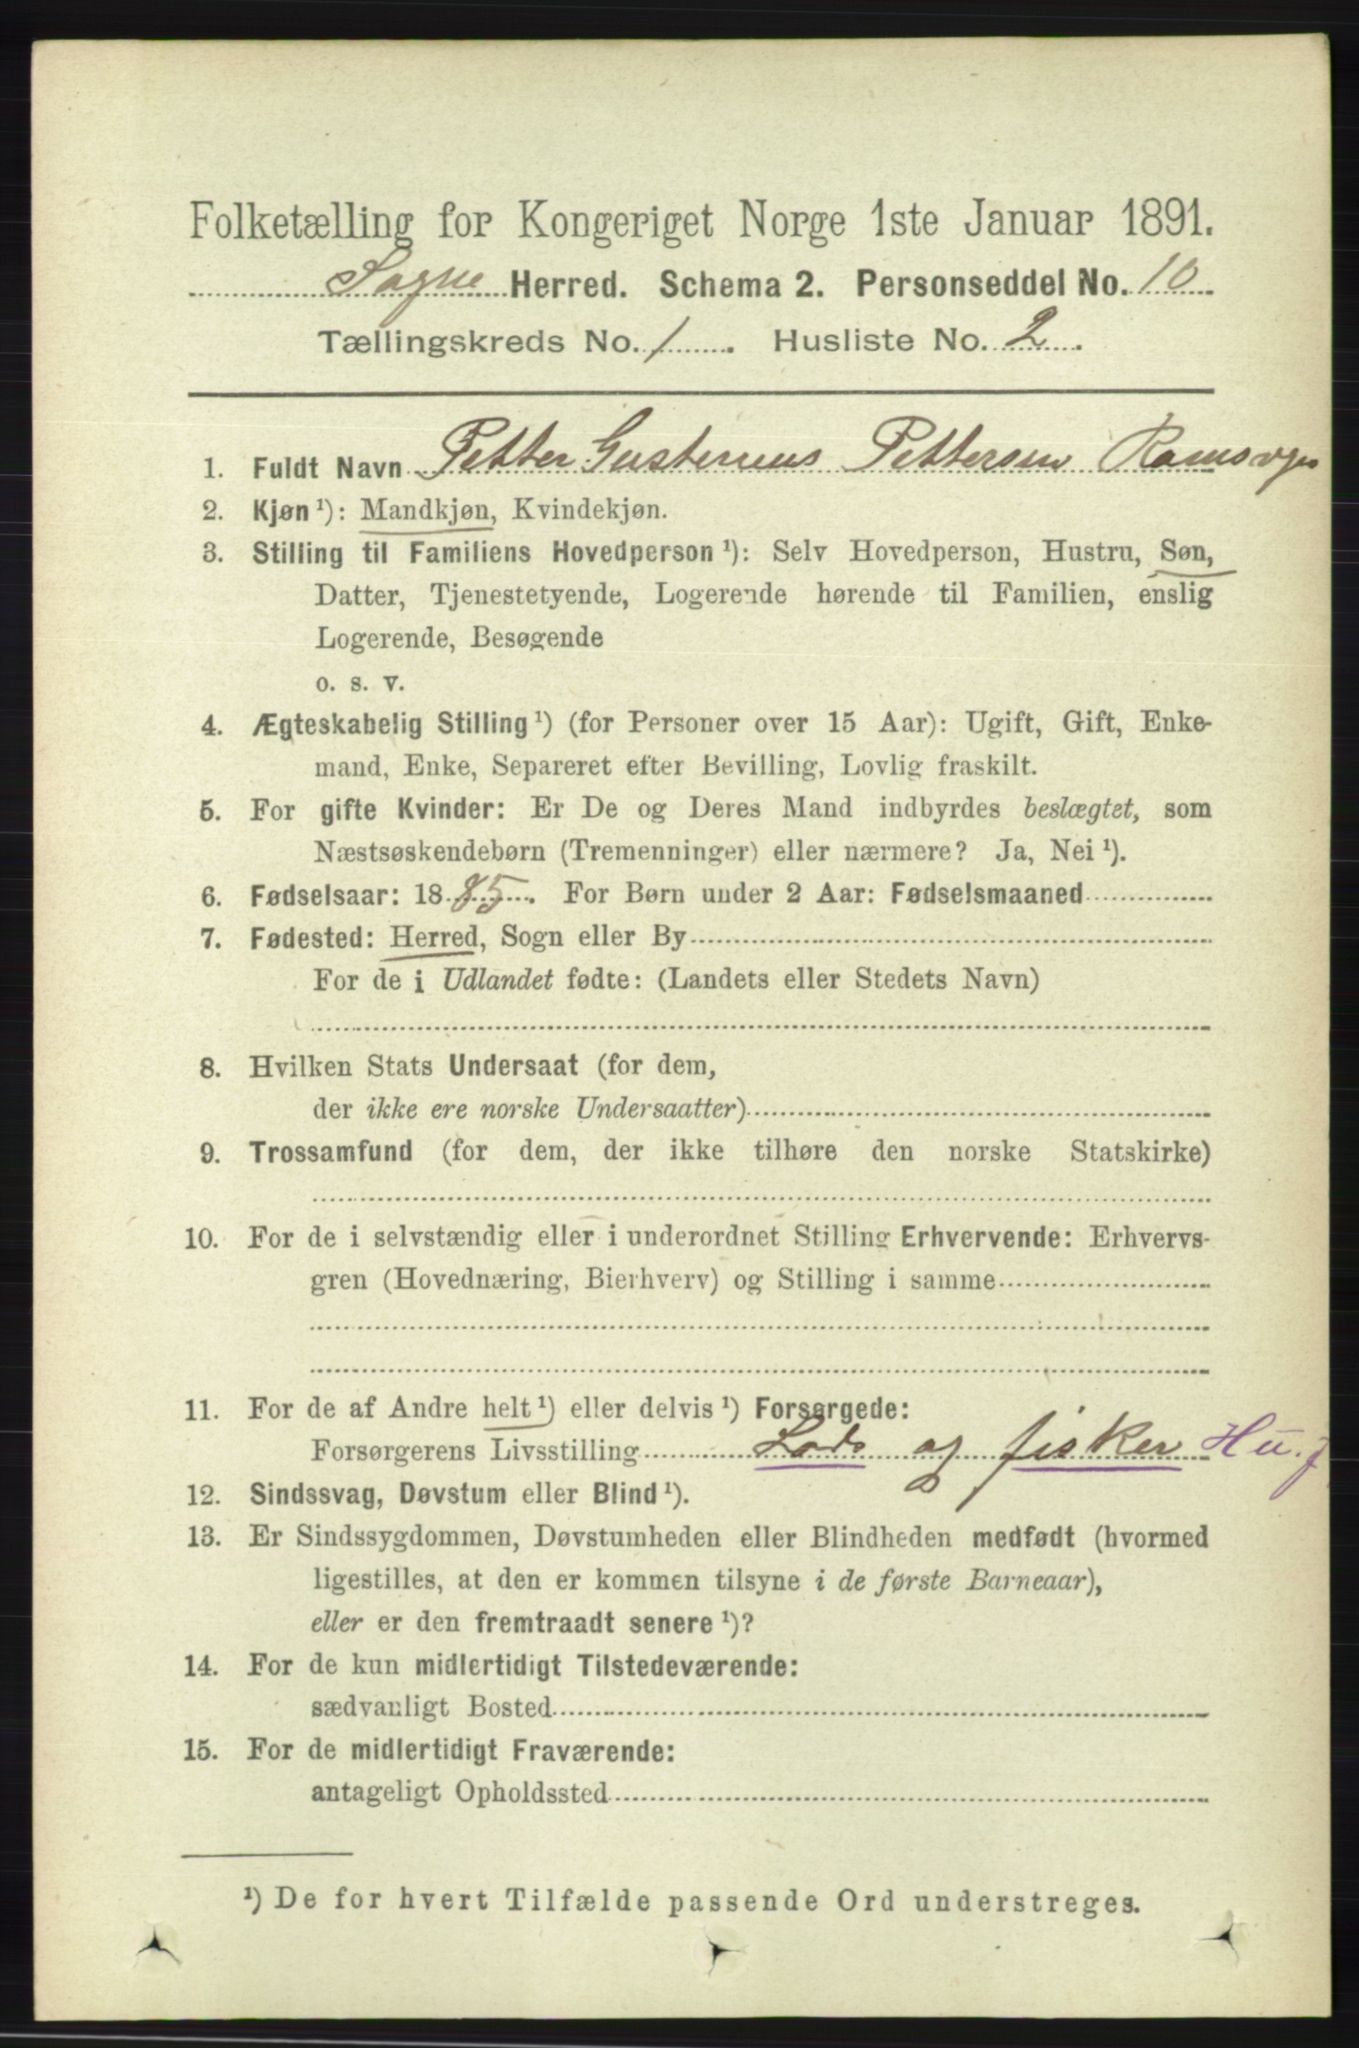 Folketælling for Kongeriget Norge 1ste Januar 1891.
Søgne Herred. Schema 2. Personseddel No. 10
Tællingskreds No. 1. Husliste No. 2.
1. Fuldt Navn Petter Pettersen
2. Kjøn ¹): Mandkjøn, Kvindekjøn.
3. Stilling til Familiens Hovedperson ¹): Selv Hovedperson, Hustru, Søn,
Datter, Tjenestetyende, Logerende hørende til Familien, enslig
Logerende, Besøgende
o. s. v.
4. Ægteskabelig Stilling ¹) (for Personer over 15 Aar): Ugift, Gift, Enke-
mand, Enke, Separeret efter Bevilling, Lovlig fraskilt.
5. For gifte Kvinder: Er De og Deres Mand indbyrdes beslægtet, som
Næstsøskendebørn (Tremenninger) eller nærmere? Ja, Nei ¹).
6. Fødselsaar: 1885. For Børn under 2 Aar: Fødselsmaaned
7. Fødested: Herred, Sogn eller By
For de i Udlandet fødte: (Landets eller Stedets Navn)
8. Hvilken Stats Undersaat (for dem,
der ikke ere norske Undersaatter)
9. Trossamfund (for dem, der ikke tilhøre den norske Statskirke)
10. For de i selvstændig eller i underordnet Stilling Erhvervende: Erhvervs-
gren (Hovednæring, Bierhverv) og Stilling i samme
11. For de af Andre helt ¹) eller delvis ¹) Forsørgede:
Forsørgerens Livsstilling Lods og fisker Hu. f
12. Sindssvag, Døvstum eller Blind ¹).
13. Er Sindssygdommen, Døvstumheden eller Blindheden medfødt (hvormed
ligestilles, at den er kommen tilsyne i de første Barneaar),
eller er den fremtraadt senere ¹)?
14. For de kun midlertidigt Tilstedeværende:
sædvanligt Bosted
15. For de midlertidigt Fraværende:
antageligt Opholdssted
¹) De for hvert Tilfælde passende Ord understreges.